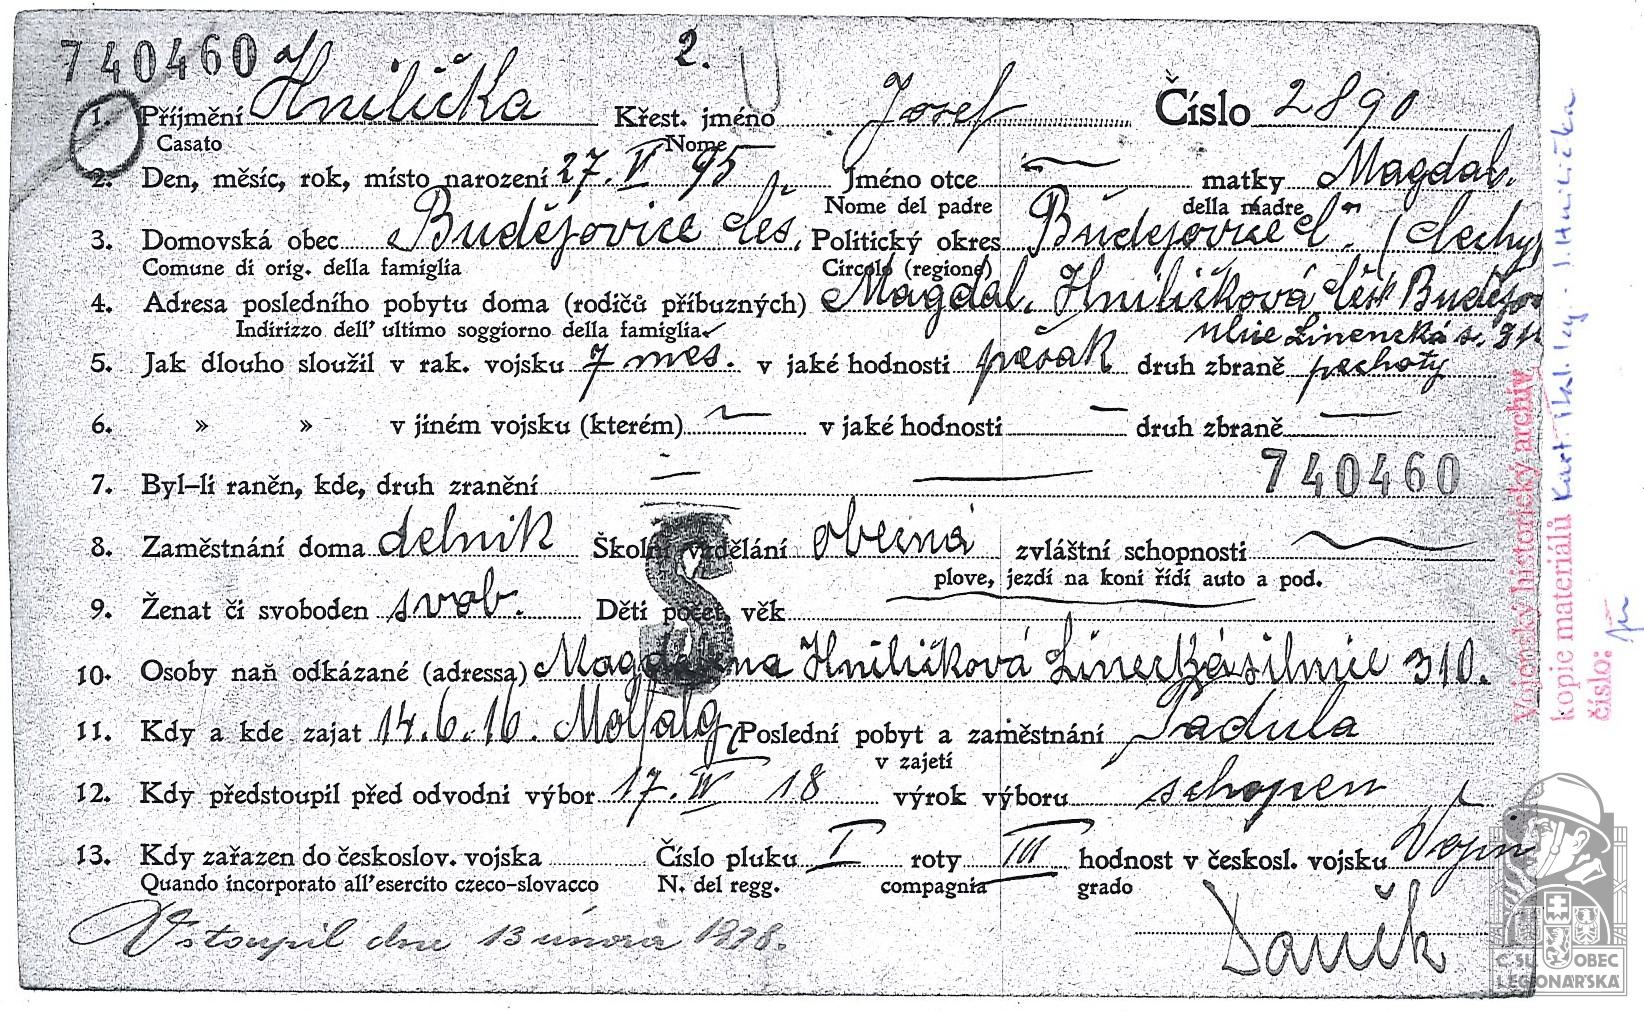 740460 2.
1. Příjmení Hnilička Křest. jméno Josef Číslo 2890
Casato Nome
2. Den, měsíc, rok, místo narození 27. V 95 Jméno otce — matky Magdal.
Nome del padre della madre
3. Domovská obec Budějovice Češ. Politický okres Budějovice Č. (Čechy)
Comune di orig. della famiglia Circolo (regione)
4. Adresa posledního pobytu doma (rodičů příbuzných) Magdal. Hniličková Česk Budějo
Indirizzo dell' ultimo soggiorno della famiglia ulice Linecká
5. Jak dlouho sloužil v rak. vojsku 7 mes. v jaké hodnosti pěšák druh zbraně pechoty
6. » » v jiném vojsku (kterém) — v jaké hodnosti — druh zbraně —
7. Byl-li raněn, kde, druh zranění — —
740460
8. Zaměstnání doma delnik Školní vzdělání obecná zvláštní schopnosti —
plove, jezdí na koni řídí auto a pod.
9. Ženat či svoboden svob. Děti počet, věk
S
10. Osoby naň odkázané (adressa) Magdalena Hniličková Linecká silnice 310.
11. Kdy a kde zajat 14.6.16. Poslední pobyt a zaměstnání Padula
v zajetí
12. Kdy předstoupil před odvodni výbor 17. IV 18 výrok výboru schopen
13. Kdy zařazen do českoslov. vojska Číslo pluku I roty III hodnost v českosl. vojsku Vojín
Quando incorporato all'esercito czeco-slovacco N. del regg. compagnia grado
Vstoupil dne 13 února 1928.
Vojenský historický archiv
kopie materiálů J. Hnilička
číslo:
Č. SL. OBEC
LEGIONÁŘSKÁ